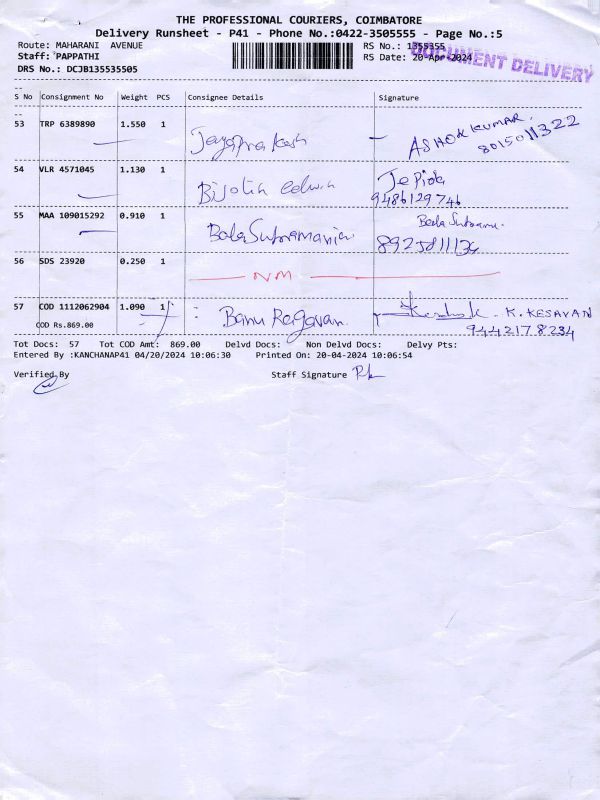 THE PROFESSIONAL COURIERS, COIMBATORE
Delivery Runsheet - P41 - Phone No.:0422-3505555 - Page No.:5
Route: MAHARANI AVENUE
RS No.: 1355355
Staff: PAPPATHI
RS Date: 20-Apr-2024
DOCUMENT DELIVERY
DRS No.: DCJB135535505
S No Consignment No Weight PCS Consignee Details Signature
53 TRP 6389890 1.550 1 Jayaprakash - ASHOK KUMAR
8015011322
54 VLR 4571045 1.130 1 Bijolin edwin
9486129746
55 MAA 109015292 0.910 1 Bala Subramanian Bala Subramani
8925811134
56 SDS 23920 0.250 1 NM
57 COD 1112062904 1.090 1 : Banu Ragavan K. KESAVAN
COD Rs.869.00
9442178234
Tot Docs: 57 Tot COD Amt: 869.00 Delvd Docs: Non Delvd Docs: Delvy Pts:
Entered By :KANCHANAP41 04/20/2024 10:06:30 Printed On: 20-04-2024 10:06:54
Verified By Staff Signature